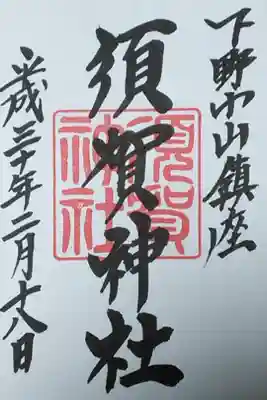 下野小山鎮座
須賀神社
須賀神社
平成三十年二月十八日